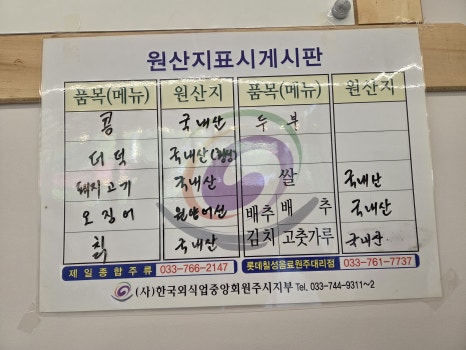 원산지표시게시판
품목(메뉴) 원산지 품목(메뉴) 원산지
콩 국내산 두부
더덕 국내산
돼지고기 국내산 쌀 국내산
오징어 원양어선 배추 배추 국내산
칡 국내산 김치 고춧가루 국내산
제일종합주류 033-766-2147 롯데칠성음료원주대리점 033-761-7737
(사)한국외식업중앙회원주시지부 Tel. 033-744-9311~2